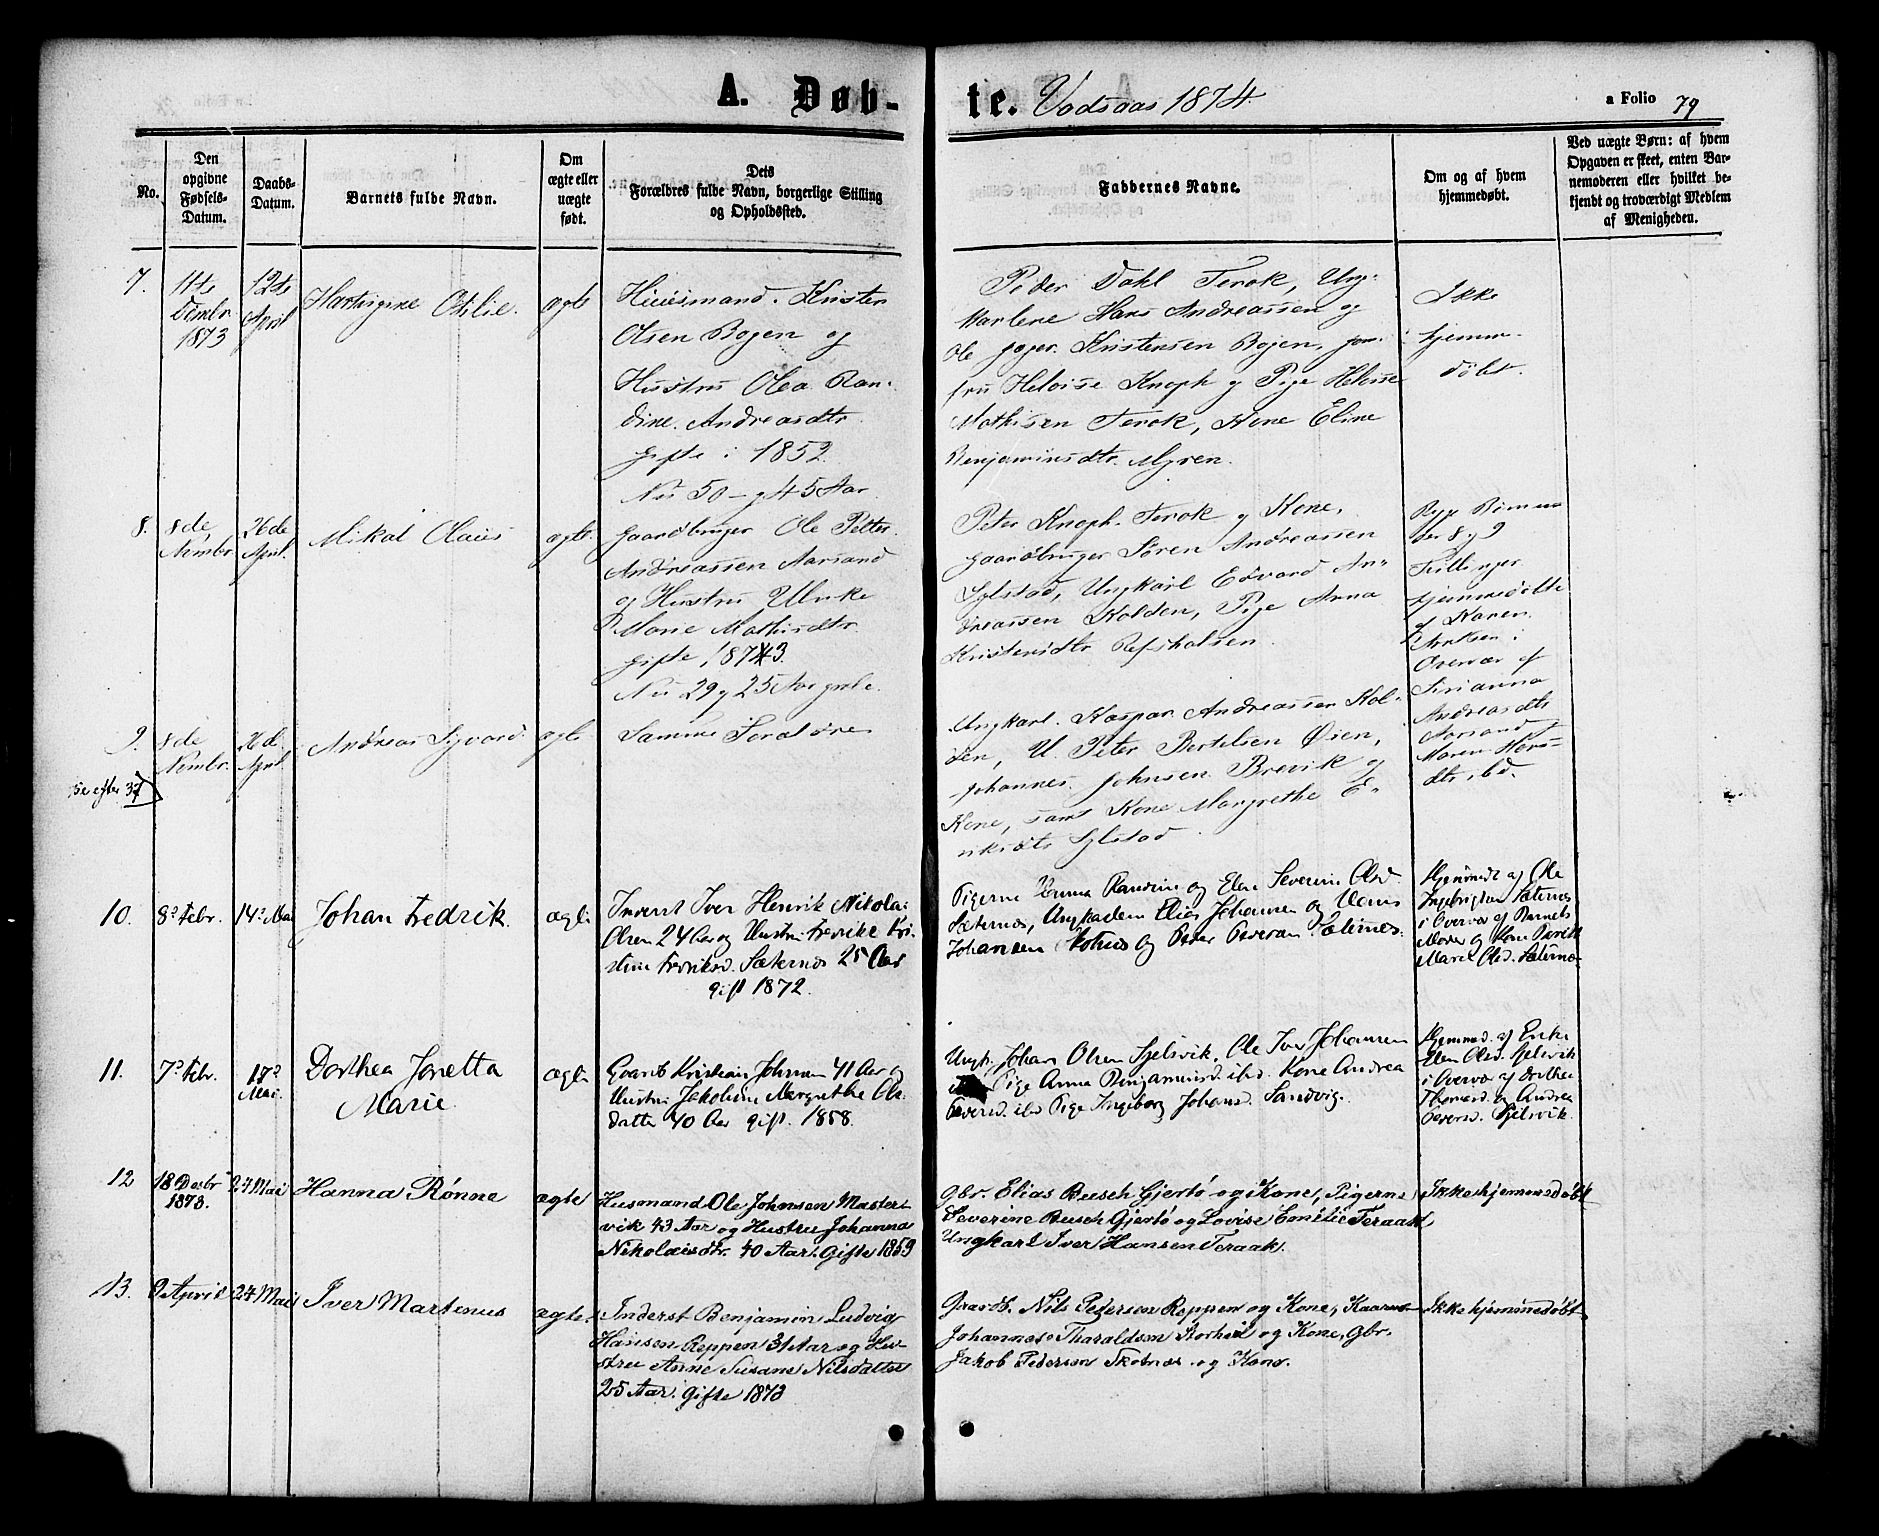 A. Døb-
te. Vadsaas 1874.
a Folio 79
No.
Den opgivne Fødsels-Datum.
Daabs-Datum.
Barnets fulde Navn.
Om ægte eller uægte født.
Dets Forældres fulde Navn, borgerlige Stilling og Opholdssted.
Faddernes Navne.
Om og af hvem hjemmedøbt.
Ved uægte Børn: af hvem Opgaven er skeet, enten Barnemoderen eller hvilket bekjendt og troværdigt Medlem af Menigheden.
7.
11te
1873
12te
April
Hartvigine Otilie.
ægte
Huusmand. Kristen
Olsen Bogen og
Hustru Olea Ran-
dine. Andreasdtr.
gifte i 1852.
Nu 50 - og 45 Aar.
Peder Dahl Terok, Ung-
karlene Hans Andreassen og
Ole Kristensen Bojen, jom-
fru Heloise Knoph og Pige Heloise
Mathisen Terok, Kone Eline
Benjaminsdtr. Myren.
Ikke
hjemme-
døbt.
8.
8de
Nvmbr.
26de
April.
Mikal Olaus
ægte.
Gaardbruger Ole Petter
Andreassen Aarsand
og Hustru Ulrike
Marie Mathisdtr.
gifte, 1873.
Nu 29 og 25 Aar
Peter Knoph. Terok og Kone,
Gaardbruger Søren Andreassen
Sylstad, Ungkarl Edvard An-
dreassen Kolden, Pige Anna
Kristensdtr Refsholsen.
8 og 9
Tvillinger
hjemmedøbte
af Karen
Eriksen i
Overvær af
Andreasdtr
Aarsand
Maren Hans-
dtr, ibd.
9.
8de
Nvmbr.
26de
April.
Andreas Sigvard
ægte
Samme Forældre
Se efter 37
Ungkarl. Kaspar Andreassen Kol-
den, U. Peter Bertelsen Øien,
Johannes Johnsen Brevik og
Kone, samt Kone Margrethe E-
riksdtr Sylstad.
10.
8de Febr.
14de Mai
Johan Fredrik.
ægte
Inderst Iver Henrik Nikolai
Olsen 24 Aar og Hustru Fredrike Kri-
stine Fredriksd. Sæternes 25 Aar
gift 1872.
Pigerne Randine og Elen Severine Olsd.
Sæternes, Ungkarlene Elias Johansen og
Johansen Skotnes og Peder Pedersen Sæternes.
Hjemmedt af Ole
Ingebrigtsen Sæternes
i Overvær af Barnets
Moder og Kone
Maret Olsd. Sæternes
11.
7de Febr.
17de
Mai.
Dorthea Jonetta
Marie.
ægte
Kristian Johnsen 41 Aar og
Hustru Jakobine Margrethe Ols-
datter 40 Aar gift. 1858.
Ungk. Johan Olsen Sjelsvik, Ole Iver Johansen
Pige Anna Benjaminsd. ibd. Kone Andrea
Pedersd. ibd Pige Ingeborg Johansd. Sandvig.
Hjemmed. af Enke
Elen Olsd. Sjelsvik
i Overvær af Dorthea
Thomasd. og Andrea
Pedersd. Sjelsvik.
12
18 Decbr
1873.
24 Mai
Hanna Rønne
ægte
Husmand Ole Johnsen Master
vik 43 Aar og Hustru Johanna
Nikolaisdtr. 40 Aar. Gifte 1859
Gbr. Elias Busch Gjertø og Kone, Pigerne
Severine Busch Gjertø og Lovise Emilie Teraak,
Ungkarl Iver Hansen Teraak.
Ikke hjemmedøbt
13.
9 April
24 Mai
Iver Martenus
ægte.
Inderst Benjamin Ludvig
Hansen Reppen 31 Aar og Hu-
stru Anne Susane Nilsdatter
25 Aar. Gifte 1873
Gaardb. Nils Pedersen Reppen og Kone,
Johannes Tharaldsen Storheil og Kone, Gbr.
Jakob Pedersen Skotnes og Kone.
Ikke hjemmedøbt